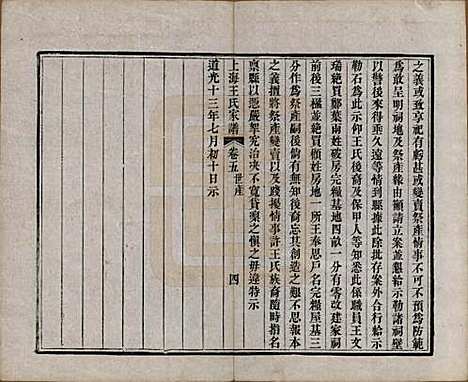 之義或致享祀有虧甚或變賣祭產情事不可不預爲防範
爲敢呈明祠地及祭產緣由顯請立案並懇給示勒諸祠壁
以警後來得垂久遠等情到縣據此除批存案外合行給示
勒石爲此示仰王氏後裔及保甲人等知悉此係職員王文
瑞絶買鄒葉雨姓破房完糧基地四畝一分有零改建家祠
前後三極並絶買顧姓房地一所王奉思戶名完糧屋基三
分作爲祭產嗣後倘有無知後裔忘其創造之艱不思報本
之義擅將祭產變賣以及踐擾情事許王氏族裔隨時指名
稟縣以憑嚴挐究治决不寬貸稟之愼之毋違特示
道光十三年七月初十日示
上海王氏家譜
卷五世產
四